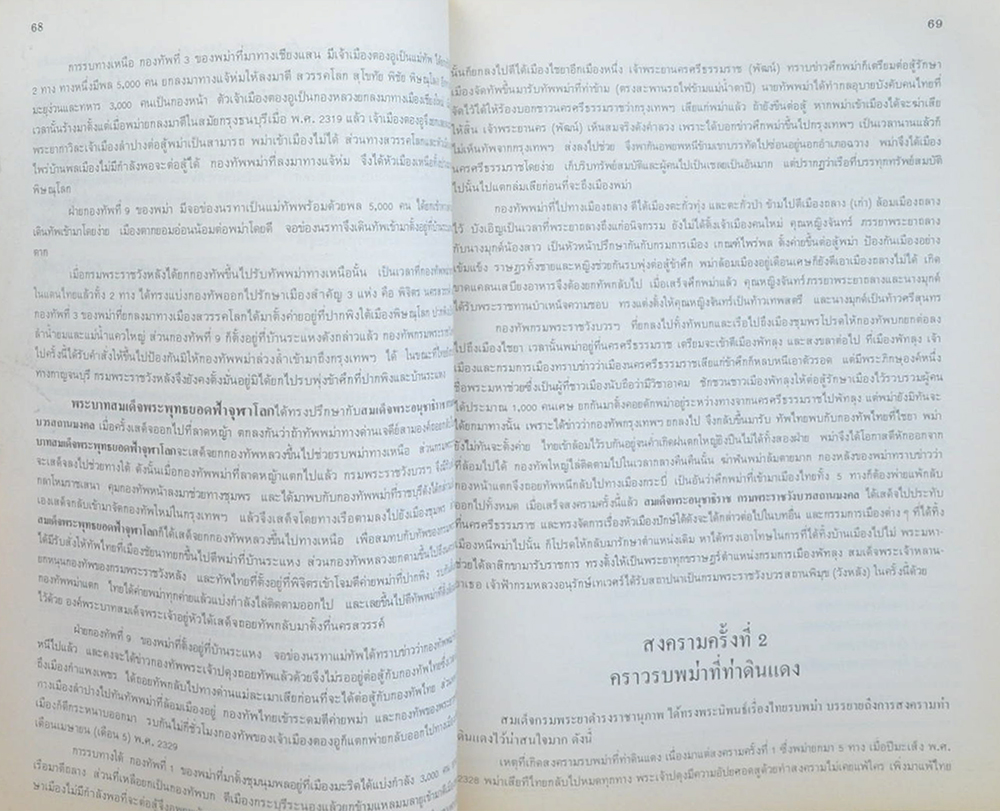 68
การรบทางเหนือ กองทัพที่ 3 ของพม่าที่มาทางเชียงแสน มีเจ้าเมืองตองอูเป็นแม่ทัพ
2 ทาง ทางหนึ่งมีพล 5,000 คน ยกลงมาทางแจ้ห่มให้ลงมาตี สวรรคโลก สุโขทัย พิชัย พิษณุโลก
มะยุง่วนและทหาร 3,000 คนเป็นกองหน้า ตัวเจ้าเมืองตองอูเป็นกองหลวงยกลงมาทางเมืองเชียงใหม่
เวลานั้นร้างมาตั้งแต่เมื่อพม่ายกลงมาตีในสมัยกรุงธนบุรีเมื่อ พ.ศ. 2319 แล้ว เจ้าเมืองตองอูจึง
พระยากาวิละเจ้าเมืองลำปางต่อสู้พม่าเป็นสามารถ พม่าเข้าเมืองไม่ได้ ส่วนทางสวรรคโลก
ไพร่บ้านพลเมืองไม่มีกำลังพอจะต่อสู้ได้ กองทัพพม่าที่ลงมาทางแจ้ห่ม จึงได้หัวเมืองเหนือ
พิษณุโลก
ฝ่ายกองทัพที่ 9 ของพม่า มีจอข่องนรทาเป็นแม่ทัพพร้อมด้วยพล 5,000 คน
เดินทัพเข้ามาโดยง่าย เมืองตากยอมอ่อนน้อมต่อพม่าโดยดี จอข่องนรทาจึงเดินทัพเข้ามาตั้งอยู่ที่
ตาก
เมื่อกรมพระราชวังหลังได้ยกกองทัพขึ้นไปรับทัพพม่าทางเหนือนั้น เป็นเวลาที่กองทัพ
ในแดนไทยแล้วทั้ง 2 ทาง ได้ทรงแบ่งกองทัพออกไปรักษาเมืองสำคัญ 3 แห่ง คือ พิจิตร
กองทัพที่ 3 ของพม่าที่ยกลงมาทางเมืองสวรรคโลกได้มาตั้งค่ายอยู่ที่ปากพิงใต้เมืองพิษณุโลก
ลำน้ำยมและแม่น้ำแควใหญ่ ส่วนกองทัพที่ 9 ก็ตั้งอยู่ที่บ้านระแหงดังกล่าวแล้ว
ไปครั้งนี้ได้รับคำสั่งให้ขึ้นไปป้องกันมิให้กองทัพพม่าล่วงล้ำเข้ามาถึงกรุงเทพฯ ได้
ทางกาญจนบุรี กรมพระราชวังหลังจึงยังคงตั้งมั่นอยู่มิได้ยกไปรบพุ่งข้าศึกที่ปากพิงและบ้านระแหง
พระบาทสมเด็จพระพุทธยอดฟ้าจุฬาโลกได้ทรงปรึกษากับสมเด็จพระอนุชาธิราช
บวรสถานมงคล เมื่อครั้งเสด็จออกไปที่ลาดหญ้า ตกลงกันว่าถ้าทัพพม่าทางด่านเจดีย์สามองค์
บาทสมเด็จพระพุทธยอดฟ้าจุฬาโลกจะเสด็จยกกองทัพหลวงขึ้นไปช่วยรบพม่าทางเหนือ
จะเสด็จลงไปช่วยทางใต้ ดังนั้นเมื่อกองทัพพม่าที่ลาดหญ้าแตกไปแล้ว กรมพระราชวังบวรฯ
กลาโหมราชเสนา คุมกองทัพหน้าลงมาช่วยทางชุมพร และได้มาพบกับกองทัพพม่าที่ราชบุรี
เองเสด็จกลับเข้ามาจัดกองทัพใหม่ในกรุงเทพฯ แล้วจึงเสด็จโดยทางเรือตามลงไปยังเมืองชุมพร
สมเด็จพระพุทธยอดฟ้าจุฬาโลกก็ได้เสด็จยกกองทัพหลวงขึ้นไปทางเหนือ
ได้มีรับสั่งให้ทัพไทยที่เมืองชัยนาทยกขึ้นไปตีพม่าที่บ้านระแหง ส่วนกองทัพหลวงยกตามขึ้นไป
ยกหนุนกองทัพของกรมพระราชวังหลัง และทัพไทยที่ตั้งอยู่ที่พิจิตรเข้าโจมตีค่ายพม่าที่ปากพิง
กองทัพพม่าแตก ไทยได้ค่ายพม่าทุกค่ายแล้วแบ่งกำลังไล่ติดตามออกไป และเลยขึ้นไปตีทัพพม่าที่
ไว้ด้วย องค์พระบาทสมเด็จพระเจ้าอยู่หัวได้เสด็จถอยทัพกลับมาตั้งที่นครสวรรค์
ฝ่ายกองทัพที่ 9 ของพม่าที่ตั้งอยู่ที่บ้านระแหง จอข่องนรทาแม่ทัพได้ทราบข่าวว่ากองทัพ
หนีไปแล้ว และคงจะได้ข่าวกองทัพพระเจ้าปดุงถอยทัพแล้วด้วยจึงไม่รออยู่ต่อสู้กับกองทัพไทย
ถึงเมืองกำแพงเพชร ได้ถอยทัพกลับไปทางด่านแม่ละเมาเสียก่อนที่จะได้ต่อสู้กับกองทัพไทย
กางเมืองลำปางไปทันทัพพม่าที่ล้อมเมืองอยู่ กองทัพไทยเข้าระดมตีค่ายพม่า และกองทัพของ
เมืองก็ตีกระหนาบออกมา รบกันไม่กี่ชั่วโมงกองทัพของเจ้าเมืองตองอูก็แตกพ่ายกลับออกไป
เดือนเมษายน (เดือน 5) พ.ศ. 2329
การรบทางใต้ กองทัพที่ 1 ของพม่าที่มาตั้งชุมนุมพลอยู่ที่เมืองมะริดได้แบ่งกำลัง 3,000 คน
เรือมาตีถลาง ส่วนที่เหลือยกเป็นกองทัพบก ตีเมืองกระบุรีระนองแล้วยกข้ามแหลมมลายูเข้ามาตีเมือง
69
นั้นก็ยกลงไปตีได้เมืองไชยาอีกเมืองหนึ่ง เจ้าพระยานครศรีธรรมราช (พัฒน์) ทราบข่าวศึกพม่าก็เตรียมต่อสู้รักษา
เมืองจัดทัพขึ้นมารับทัพพม่าที่ท่าข้าม (ตรงสะพานรถไฟข้ามแม่น้ำตาปี) นายทัพพม่าได้ทำกลอุบายบังคับคนไทยที่
จัดไว้ได้ให้ร้องบอกชาวนครศรีธรรมราชว่ากรุงเทพฯ เสียแก่พม่าแล้ว ถ้ายังขืนต่อสู้ หากพม่าเข้าเมืองได้จะฆ่าเสีย
ให้สิ้น เจ้าพระยานคร (พัฒน์) เห็นสมจริงดังคำลวง เพราะได้บอกข่าวศึกพม่าขึ้นไปกรุงเทพฯ เป็นเวลานานแล้วก็
ไม่เห็นทัพจากกรุงเทพฯ ส่งลงไปช่วย จึงพากันอพยพหนีข้ามเขาบรรทัดไปซ่อนอยู่นอกอำเภอฉวาง พม่าจึงได้เมือง
นครศรีธรรมราชโดยง่าย เก็บริบทรัพย์สมบัติและผู้คนไปเป็นเชลยเป็นอันมาก แต่ปรากฏว่าเรือที่บรรทุกทรัพย์สมบัติ
ไปนั้นไปแตกล่มเสียก่อนที่จะถึงเมืองพม่า
กองทัพพม่าที่ไปทางเมืองถลาง ตีได้เมืองตะกั่วทุ่ง และตะกั่วป่า ข้ามไปตีเมืองถลาง (เก่า) ล้อมเมือง
ไว้ บังเอิญเป็นเวลาที่พระยาถลางถึงแก่อนิจกรรม ยังไม่ได้ตั้งเจ้าเมืองคนใหม่ คุณหญิงจันทร์ ภรรยาพระยาถลาง
กับนางมุกด์น้องสาว เป็นหัวหน้าปรึกษากันกับกรมการเมือง เกณฑ์ไพร่พล ตั้งค่ายขึ้นต่อสู้พม่า ป้องกันเมืองอย่าง
เข้มแข็ง ราษฎรทั้งชายและหญิงช่วยกันรบพุ่งต่อสู้ข้าศึก พม่าล้อมเมืองอยู่เดือนเศษก็ยังตีเอาเมืองถลางไม่ได้ เกิด
ขาดแคลนเสบียงอาหารจึงต้องยกทัพกลับไป เมื่อเสร็จศึกพม่าแล้ว คุณหญิงจันทร์ภรรยาพระยาถลางและนางมุกด์
ได้รับพระราชทานบำเหน็จความชอบ ทรงแต่งตั้งให้คุณหญิงจันทร์เป็นท้าวเทพสตรี และนางมุกด์เป็นท้าวศรีสุนทร
กองทัพกรมพระราชวังบวรฯ ที่ยกลงไปทั้งทัพบกและเรือไปถึงเมืองชุมพรโปรดให้กองทัพบกยกต่อลง
ไปถึงเมืองไชยา เวลานั้นพม่าอยู่ที่นครศรีธรรมราช เตรียมจะเข้าตีเมืองพัทลุง และสงขลาต่อไป ที่เมืองพัทลุง เจ้า
เมืองและกรมการเมืองทราบข่าวว่าเมืองนครศรีธรรมราชเสียแก่ข้าศึกก็หลบหนีเอาตัวรอด แต่มีพระภิกษุองค์หนึ่ง
ชื่อพระมหาช่วยซึ่งเป็นผู้ที่ชาวเมืองนับถือว่ามีวิชาอาคม ชักชวนชาวเมืองพัทลุงให้ต่อสู้รักษาเมืองไว้รวบรวมผู้คน
ได้ประมาณ 1,000 คนเศษ ยกกันมาตั้งคอยดักพม่าอยู่ระหว่างทางจากนครศรีธรรมราชไปพัทลุง แต่พม่ายังมิทันจะ
ได้ยกมาทางนั้น เพราะได้ข่าวว่ากองทัพกรุงเทพฯ ยกลงไป จึงกลับขึ้นมารับ ทัพไทยพบกับกองทัพไทยที่ไชยา พม่า
ยังไม่ทันจะตั้งค่าย ไทยเข้าล้อมไว้รบกันอยู่จนค่ำเกิดฝนตกใหญ่ยิงปืนไม่ได้ทั้งสองฝ่าย พม่าจึงได้โอกาสตีหักออกจาก
ที่ล้อมไปได้ กองทัพใหญ่ไล่ติดตามไปในเวลากลางคืนคืนนั้น ฆ่าฟันพม่าล้มตายมาก กองหลังของพม่าทราบข่าวว่า
กองหน้าแตกจึงถอยทัพหนีกลับไปทางเมืองกระบี่ เป็นอันว่าศึกพม่าที่เข้ามาเมืองไทยทั้ง 5 ทางก็ต้องพ่ายแพ้กลับ
ออกไปทั้งหมด เมื่อเสร็จสงครามครั้งนี้แล้ว สมเด็จพระอนุชาธิราช กรมพระราชวังบวรสถานมงคล ได้เสด็จไปประทับ
ที่นครศรีธรรมราช และทรงจัดการเรื่องหัวเมืองปักษ์ใต้ดังจะได้กล่าวต่อไปในบทอื่น และกรรมการเมืองต่าง ๆ ที่ได้ทิ้ง
เมืองหนีพม่าไปนั้น ก็โปรดให้กลับมารักษาตำแหน่งเดิม หาได้ทรงเอาโทษในการที่ได้ทิ้งบ้านเมืองไปไม่ พระมหา-
ช่วยได้ลาสิกขามารับราชการ ทรงตั้งให้เป็นพระยาทุกขราษฎร์ตำแหน่งกรมการเมืองพัทลุง สมเด็จพระเจ้าหลาน-
เธอ เจ้าฟ้ากรมหลวงอนุรักษ์เทเวศร์ได้รับสถาปนาเป็นกรมพระราชวังบวรสถานพิมุข (วังหลัง) ในครั้งนี้ด้วย
สงครามครั้งที่ 2
คราวรบพม่าที่ท่าดินแดง
สมเด็จกรมพระยาดำรงราชานุภาพ ได้ทรงพระนิพนธ์เรื่องไทยรบพม่า บรรยายถึงการสงครามท่า
ดินแดงไว้น่าสนใจมาก ดังนี้
เหตุที่เกิดสงครามรบพม่าที่ท่าดินแดง เนื่องมาแต่สงครามครั้งที่ 1 ซึ่งพม่ายกมา 5 ทาง เมื่อปีมะเส็ง พ.ศ.
2328 พม่าเสียทีไทยกลับไปหมดทุกทาง พระเจ้าปดุงมีความอัปยศอดสูด้วยทำสงครามไม่เคยแพ้ใคร เพิ่งมาแพ้ไทย